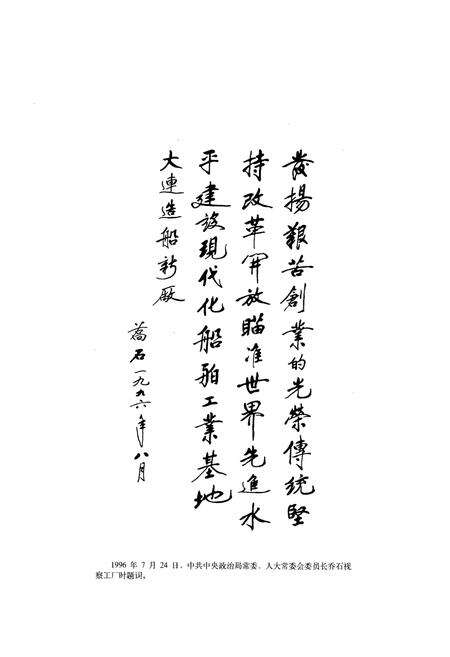 發揚艰苦創業的光榮傳統堅
持改革开放瞄准世界先進水
平建設現代化船舶工業基地
大連造船新廠
喬石一九九六年八月
1996 年 7 月 24 日，中共中央政治局常委、人大常委会委员长乔石视
察工厂时题词。